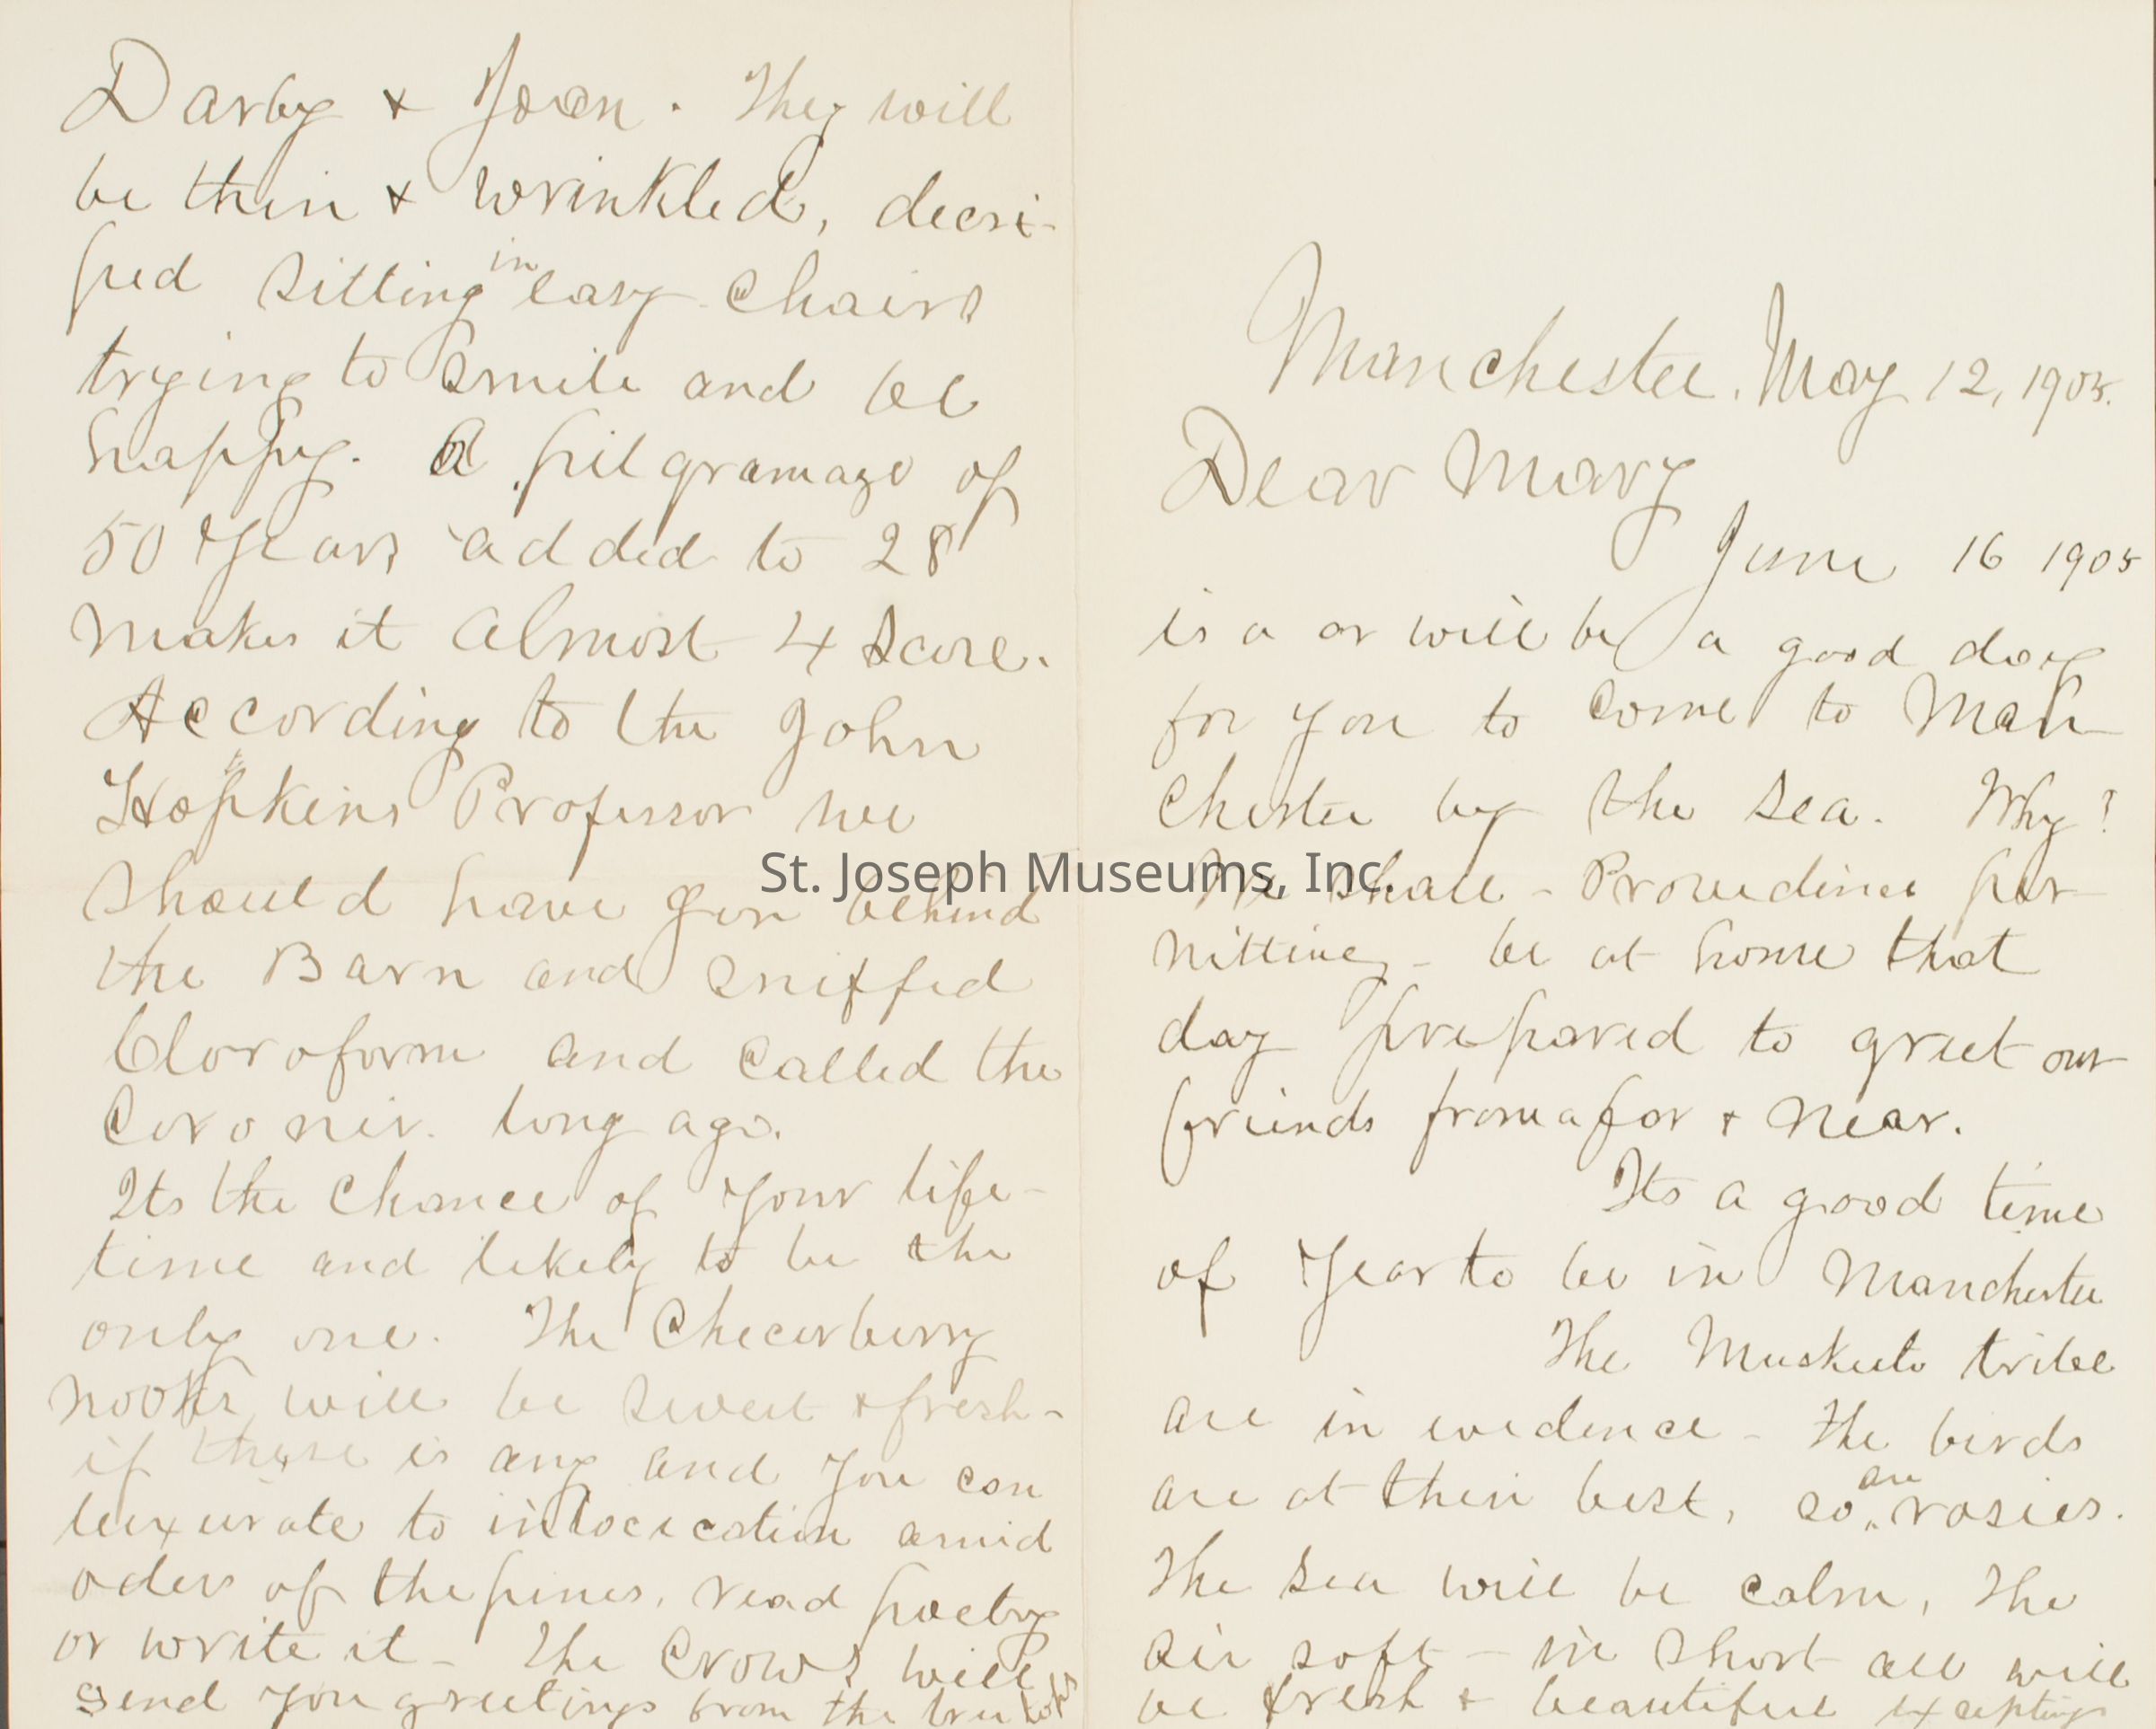 Manchester. May 12, 1905.
Dear Mary
June 16 1905
is a or will be a good day
for you to come to Man
Chester by the Sea. Why?
We shall - Providence per-
mitting - be at home that
day prepared to greet our
friends from afar + near.
Its a good time
of Year to be in Manchester
The Muskeeto tribe
are in evidence - The birds
are at their best, so are rosies.
The Sea will be calm, The
air soft - in short all will
be fresh + beautiful excepting
Darby + Joan. They will
be thin + wrinkled, decri-
pied sitting in easy chairs
trying to smile and be
happy. A pilgramage of
50 Years added to 28
makes it almost 4 Score.
According to the John
Hopkins Professor we
should have gon behind
the Barn and sniffed
Cloroform and called the
Coronir. long ago.
Its the Chance of your life-
time and likely to be the
only one. The Checerberry
nooks will be sweet + fresh -
if there is any and you can
luxurate to intocication amid
oders of the pines, read poetry
or write it - The Crows will
send you greetings from the tree tops
St. Joseph Museums, Inc.